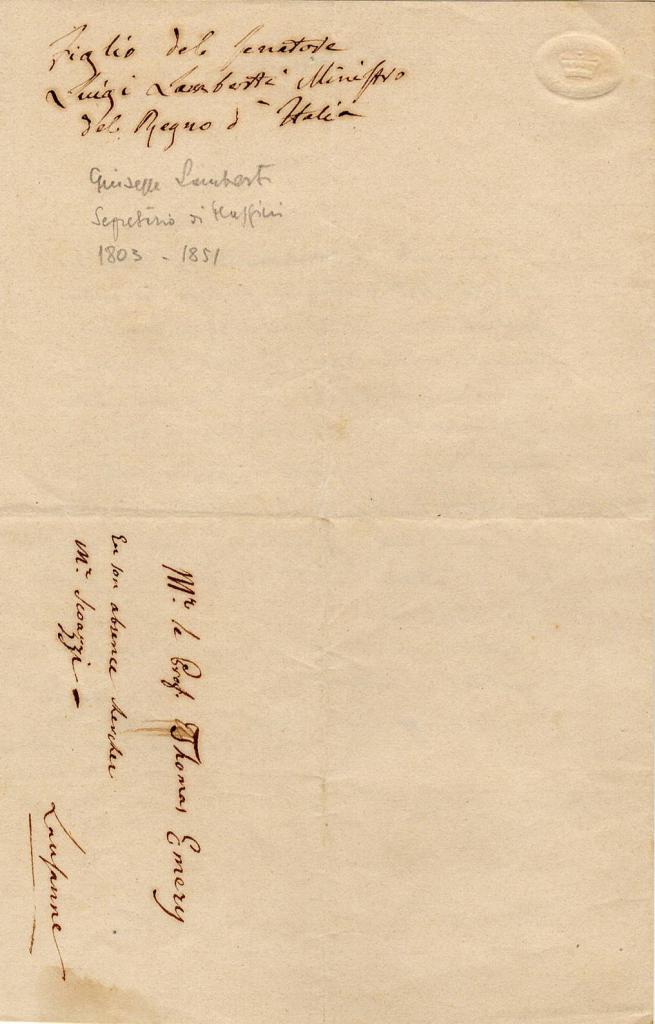 Figlio del Senatore
Luigi Lamberti Ministro
del Regno d'Italia
Giuseppe Lamberti
Segretario di
1803 - 1851
Mr. le Prof. Thomas Emery
En son absence
Mr. Scovazzi
Lausanne